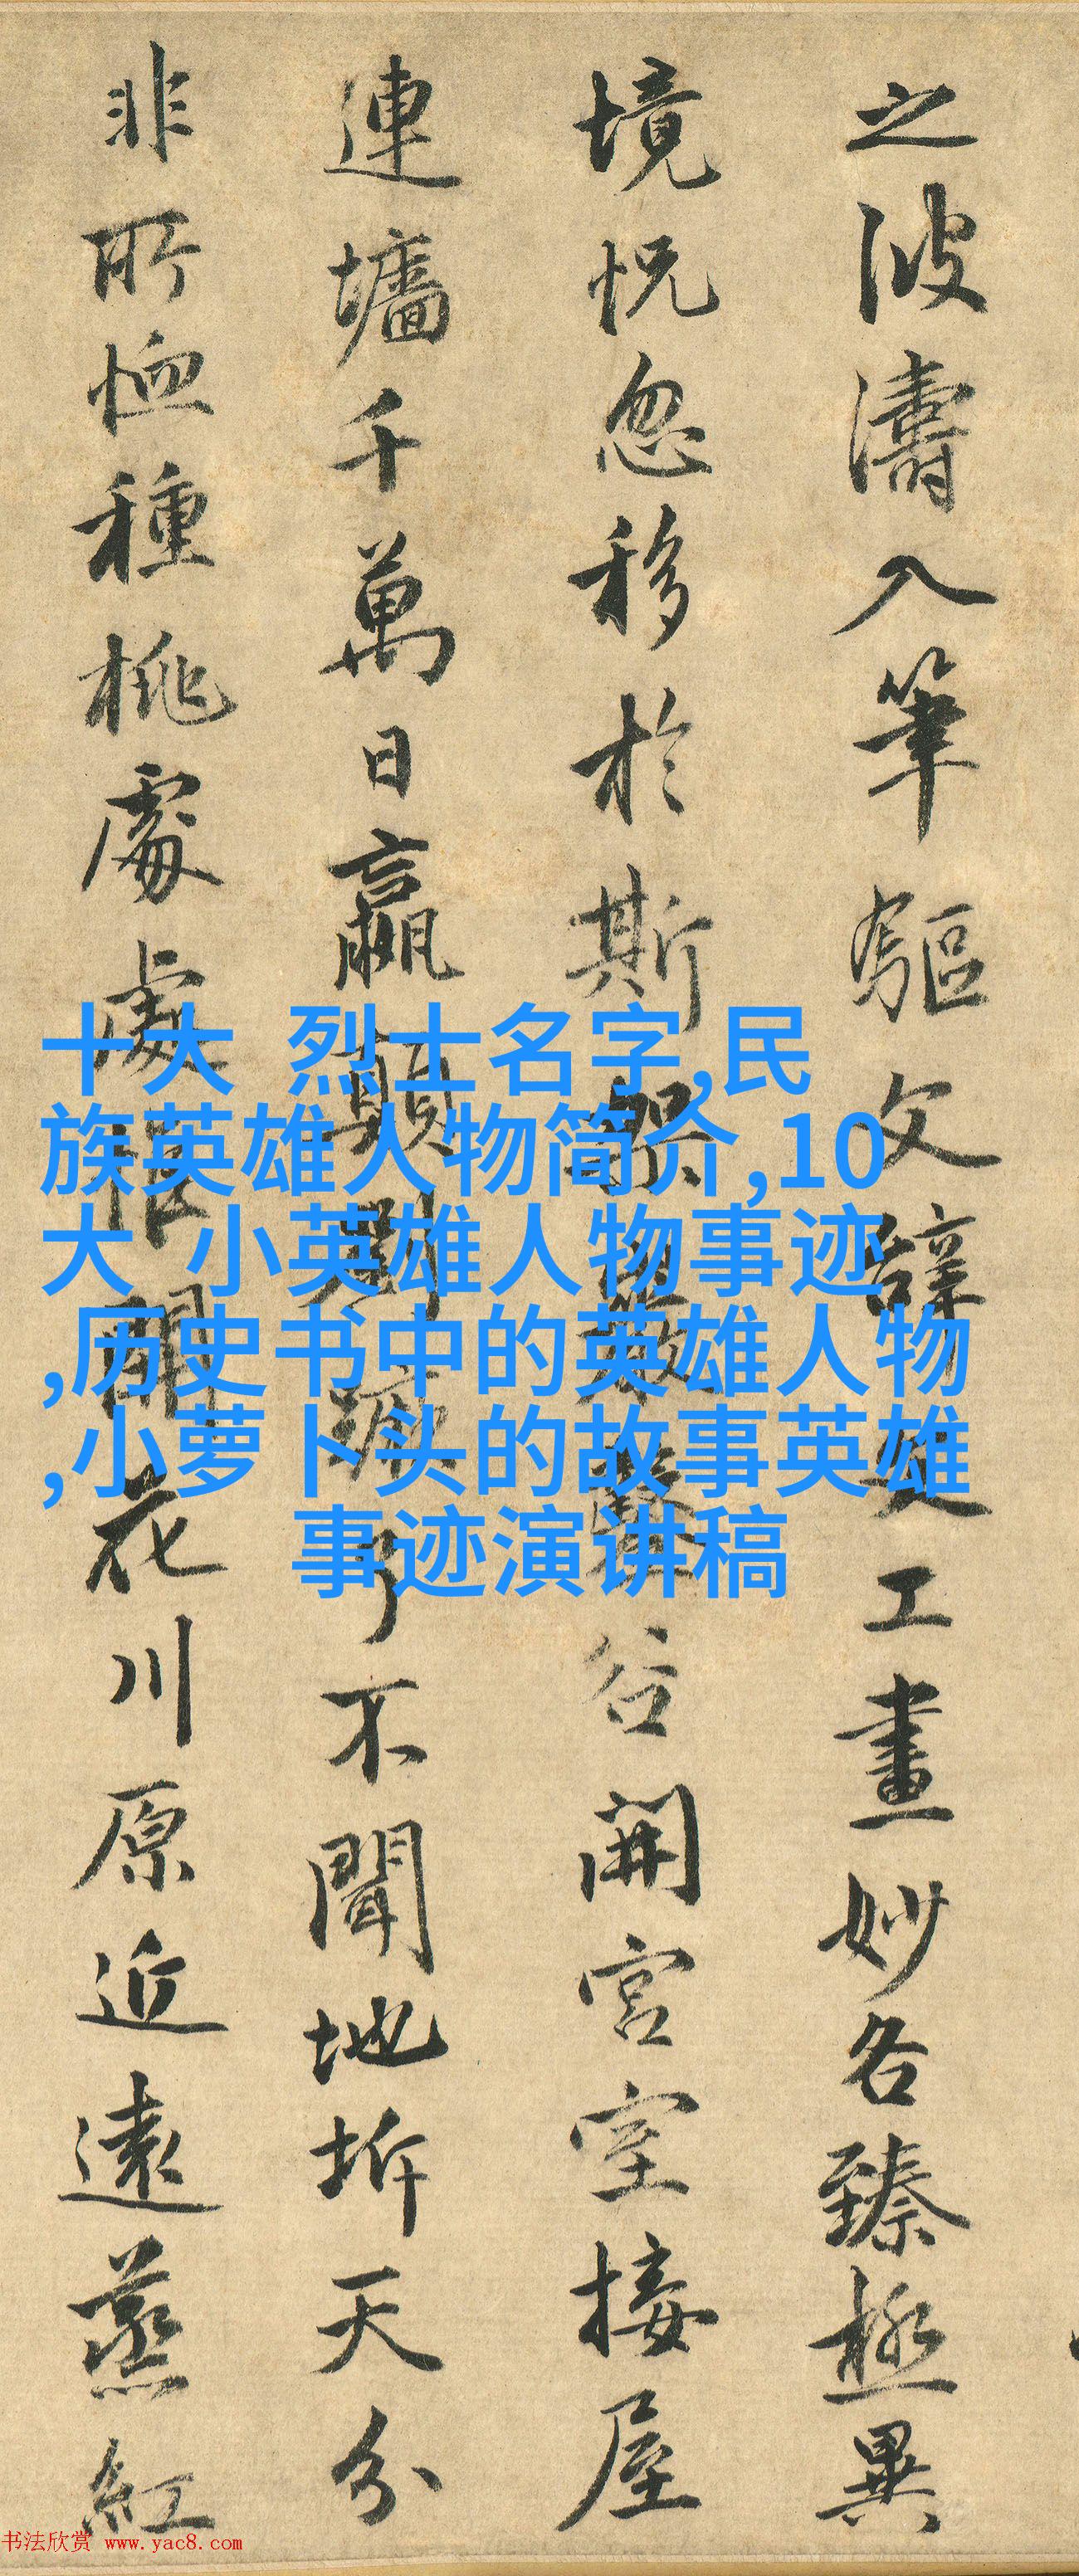 之波濤入筆驅文辭文工畫妙各臻極異
境怳忽移於斯架巖鑿谷開宮室接屋
連墻千萬日嬴顛劉蹶了不聞地坼天分
非所恤種桃處處惟開花川原近遠蒸紅
十大 烈士名字,民
族英雄人物简介,10
大 小英雄人物事迹
,历史书中的英雄人物
,小萝卜头的故事英雄
事迹演讲稿
书法欣赏 www.yac8.com